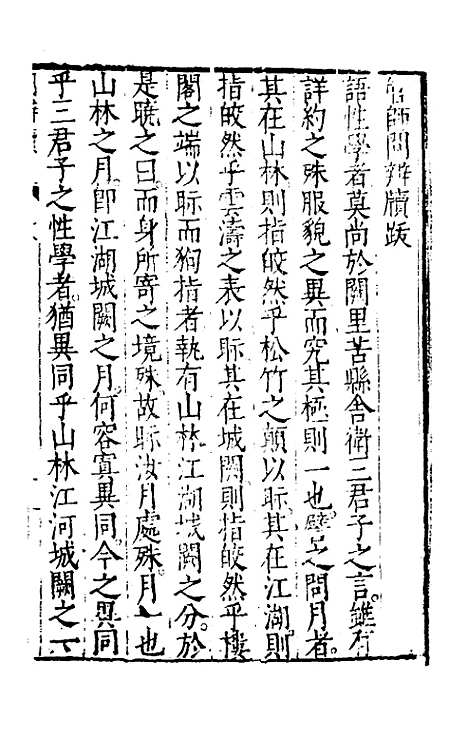 師問辨牘跋
語性學者莫尚於闕里苦縣舍衛三君子之言雖有
詳約之殊服貌之異而究其極則一也譬之問月者
其在山林則指皎然乎松竹之顛以眎其在江湖則
指皎然乎雲濤之表以眎其在城闕則指皎然乎樓
閣之端以眎而狥指者執有山林江湖城闕之分於
是曉之曰而身所寄之境殊故眎汝月處殊月一也
山林之月卽江湖城闕之月何容寘異同今之異同
乎三君子之性學者猶異同乎山林江河城闕之